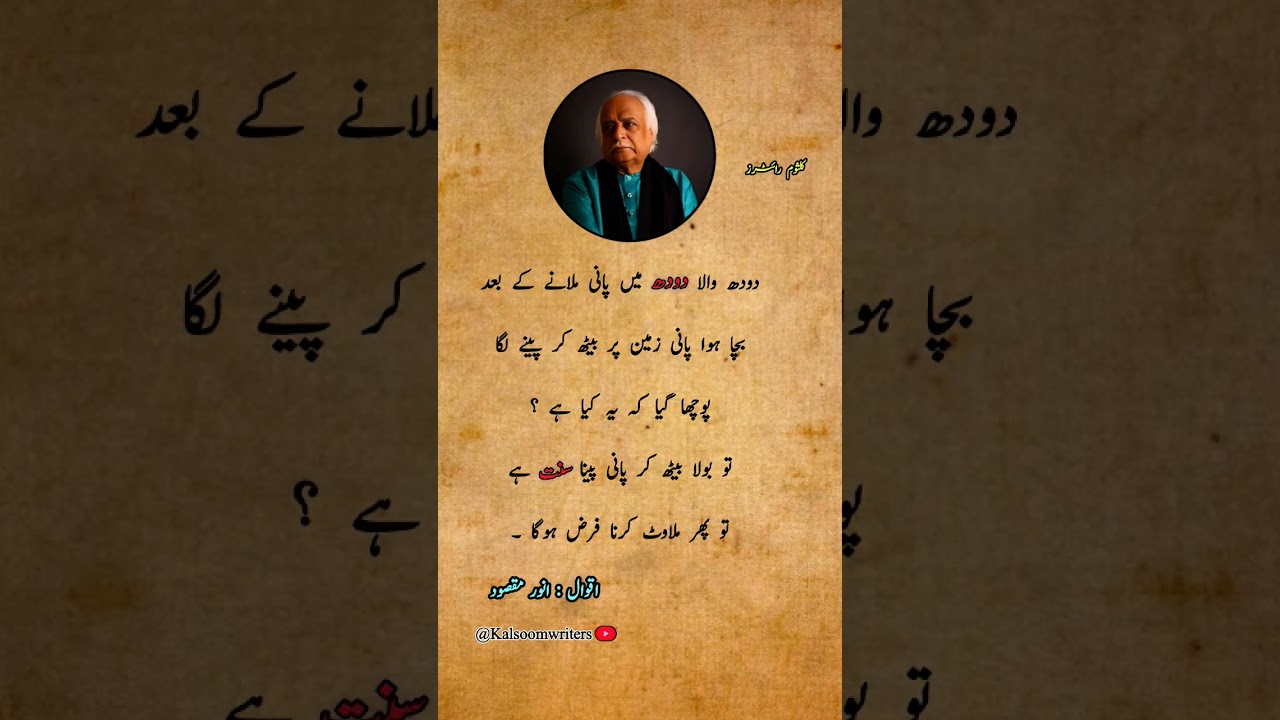 کلثوم رائٹرز
دودھ والا دودھ میں پانی ملانے کے بعد
بچا ہوا پانی زمین پر بیٹھ کر پینے لگا
پوچھا گیا کہ یہ کیا ہے ؟
تو بولا بیٹھ کر پانی پینا سنت ہے
تو پھر ملاوٹ کرنا فرض ہوگا ۔
اقوال : انور مقصود
@Kalsoomwriters